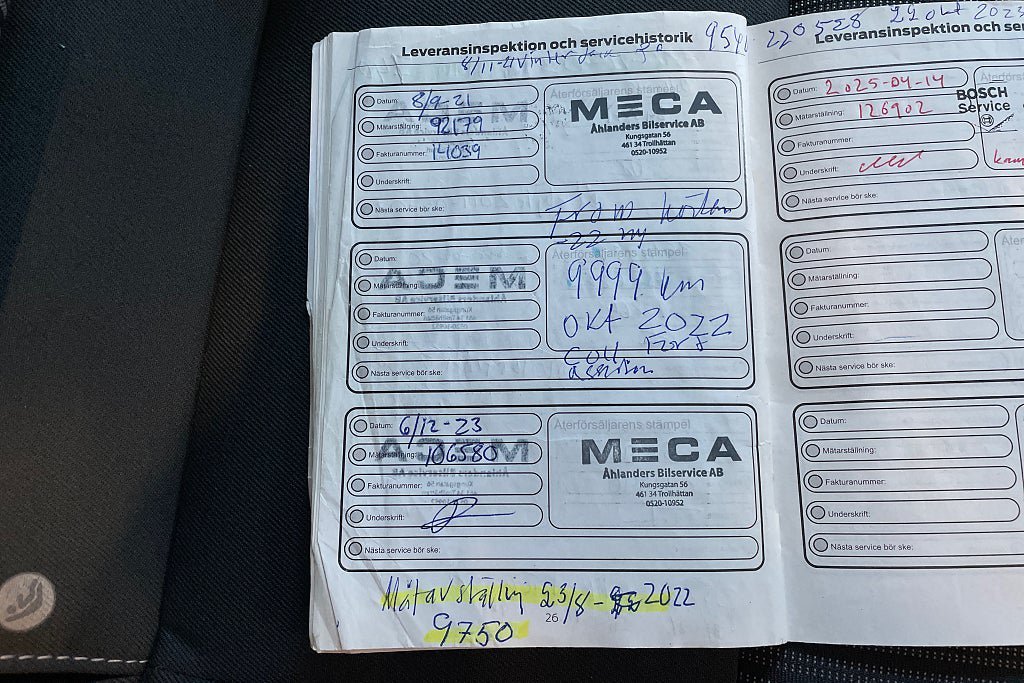 Leveransinspektion och servicehistorik
8/11-21 Vinter
Datum: 8/9-21
Mätarställning: 92179
Fakturanummer: 14039
Underskrift:
Nästa service bör ske:
Återförsäljarens stämpel
MECA
Åhlanders Bilservice AB
Kungsgatan 56
461 34 Trollhättan
0520-10952
From hösten
-22 ny
Datum:
Mätarställning:
Fakturanummer:
Underskrift:
Nästa service bör ske:
Återförsäljarens stämpel
9999 km
OKT 2022
Datum: 6/12-23
Mätarställning: 106580
Fakturanummer:
Underskrift:
Nästa service bör ske:
Återförsäljarens stämpel
MECA
Åhlanders Bilservice AB
Kungsgatan 56
461 34 Trollhättan
0520-10952
Mätavställnij 23/8- 2022
9750
26
220528 22 okt 2023
Leveransinspektion och
Datum: 2025-04-14
Mätarställning: 126902
Fakturanummer:
Underskrift:
Nästa service bör ske:
BOSCH
Service
Datum:
Mätarställning:
Fakturanummer:
Underskrift:
Nästa service bör ske:
Datum:
Mätarställning:
Fakturanummer:
Underskrift:
Nästa service bör ske: